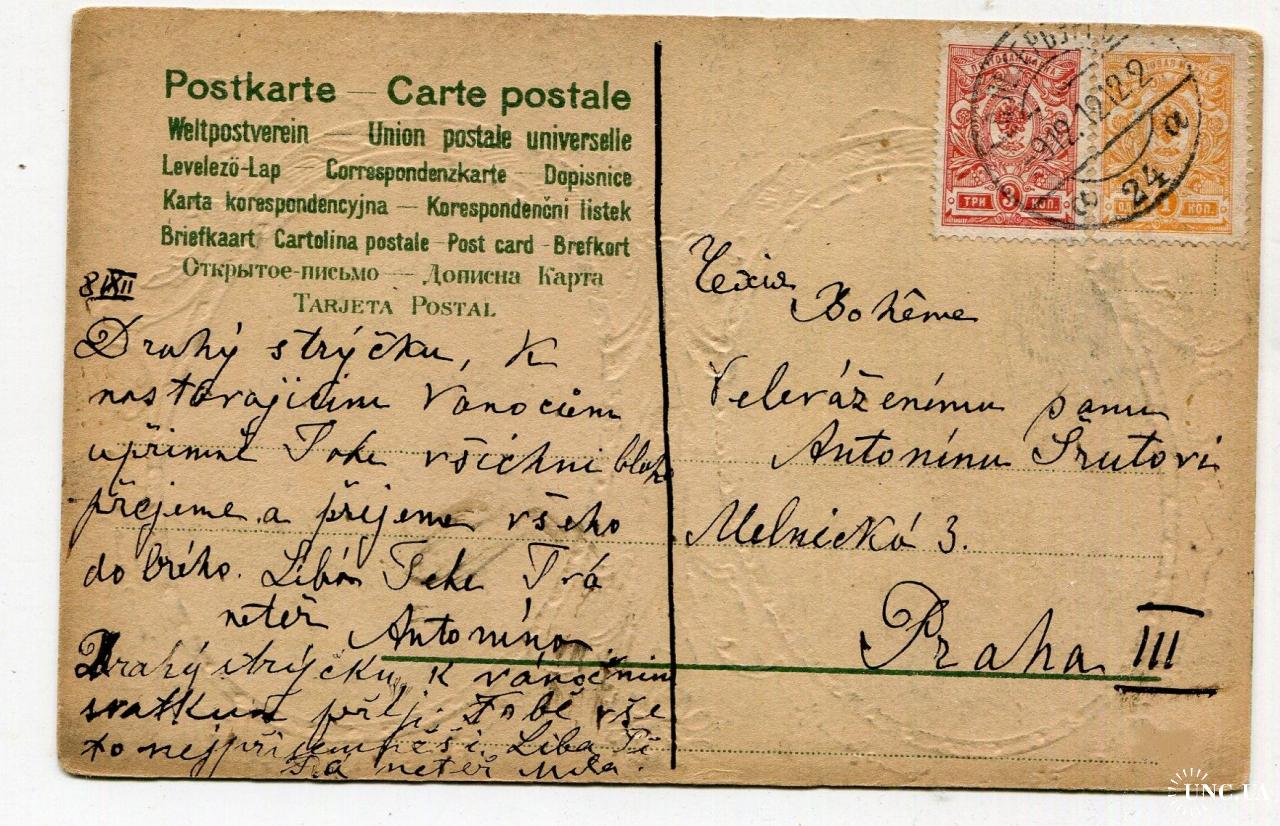 Postkarte — Carte postale
Weltpostverein — Union postale universelle
Levelező-Lap Correspondenzkarte — Dopisnice
Karta korespondencyjna — Korespondenčni listek
Briefkaart Cartolina postale - Post card - Brefkort
Открытое-письмо — Дописна Карта
Tarjeta Postal
8/XII
Drahý strýčku, k
nastávajícím Vánocům
upřímně Tobe všichni blaho
přejeme a přejeme všeho
dobrého. Líbá Tebe Tvá
neteř
Antonína
Drahý strýčku k vánočním
svatkum přeji Tobě vše
to nejpříjemnéši. Líba Tě
Tvá neteř Mila.
ТРИ 3 КОП.
1 КОП.
12.12
24 а
Чехія
Bohême
Veleváženému panu
Antonínu Šrutovi
Melnická 3.
Praha III
UNC.UA